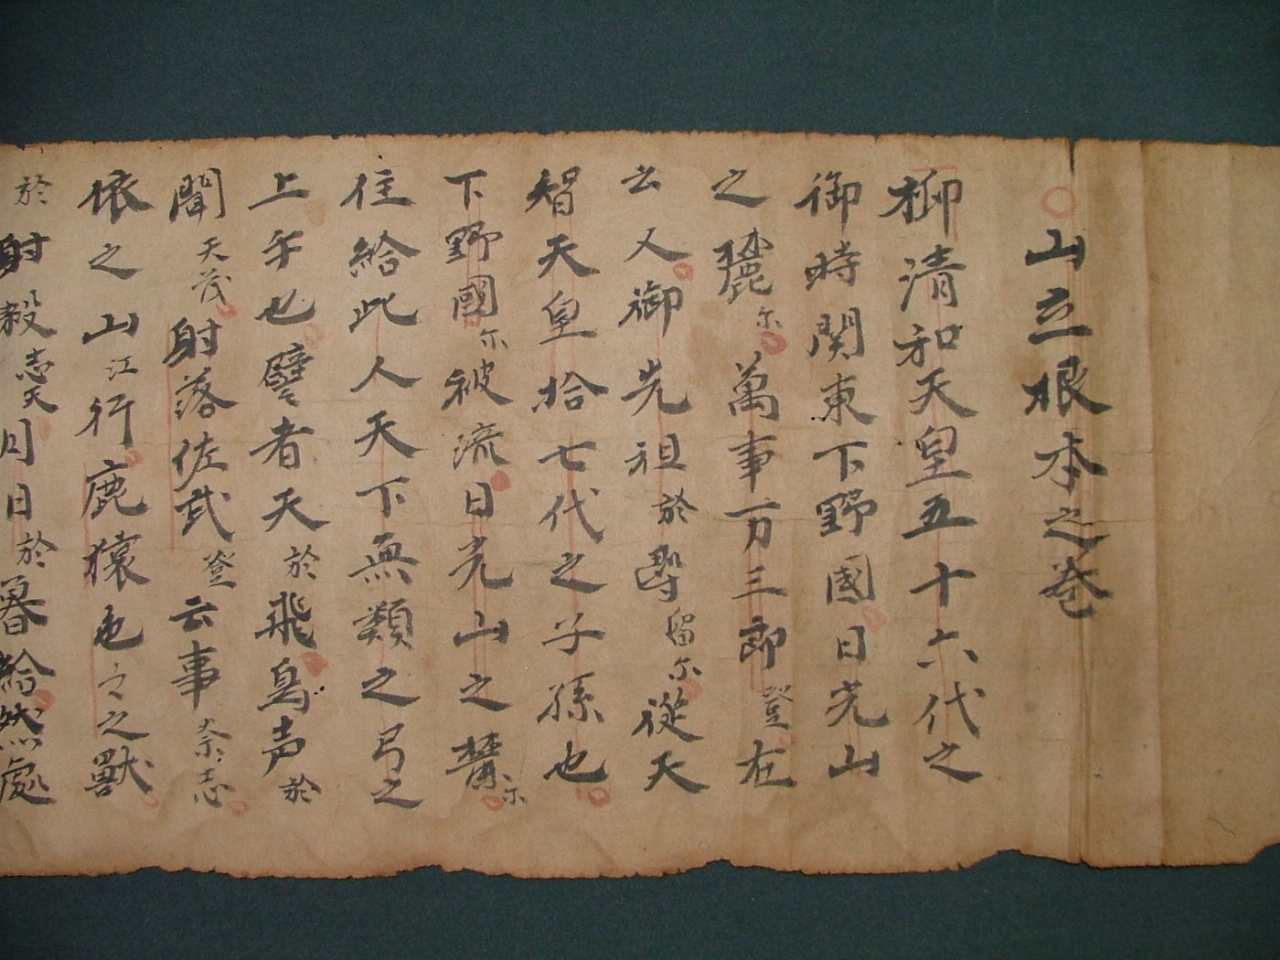 山立根本之巻
抑清和天皇五十六代之
御時関東下野國日光山
之麓尓萬事万三郎登在
云人御先祖於尋留尓従天
智天皇拾七代之子孫也
下野國尓被流日光山之麓尓
住給此人天下無類之弓之
上手也譬者天於飛鳥声於
聞天茂射落佐武登云事奈志
依之山江行鹿猿色々之獣
於射殺志天月日於暮給然處